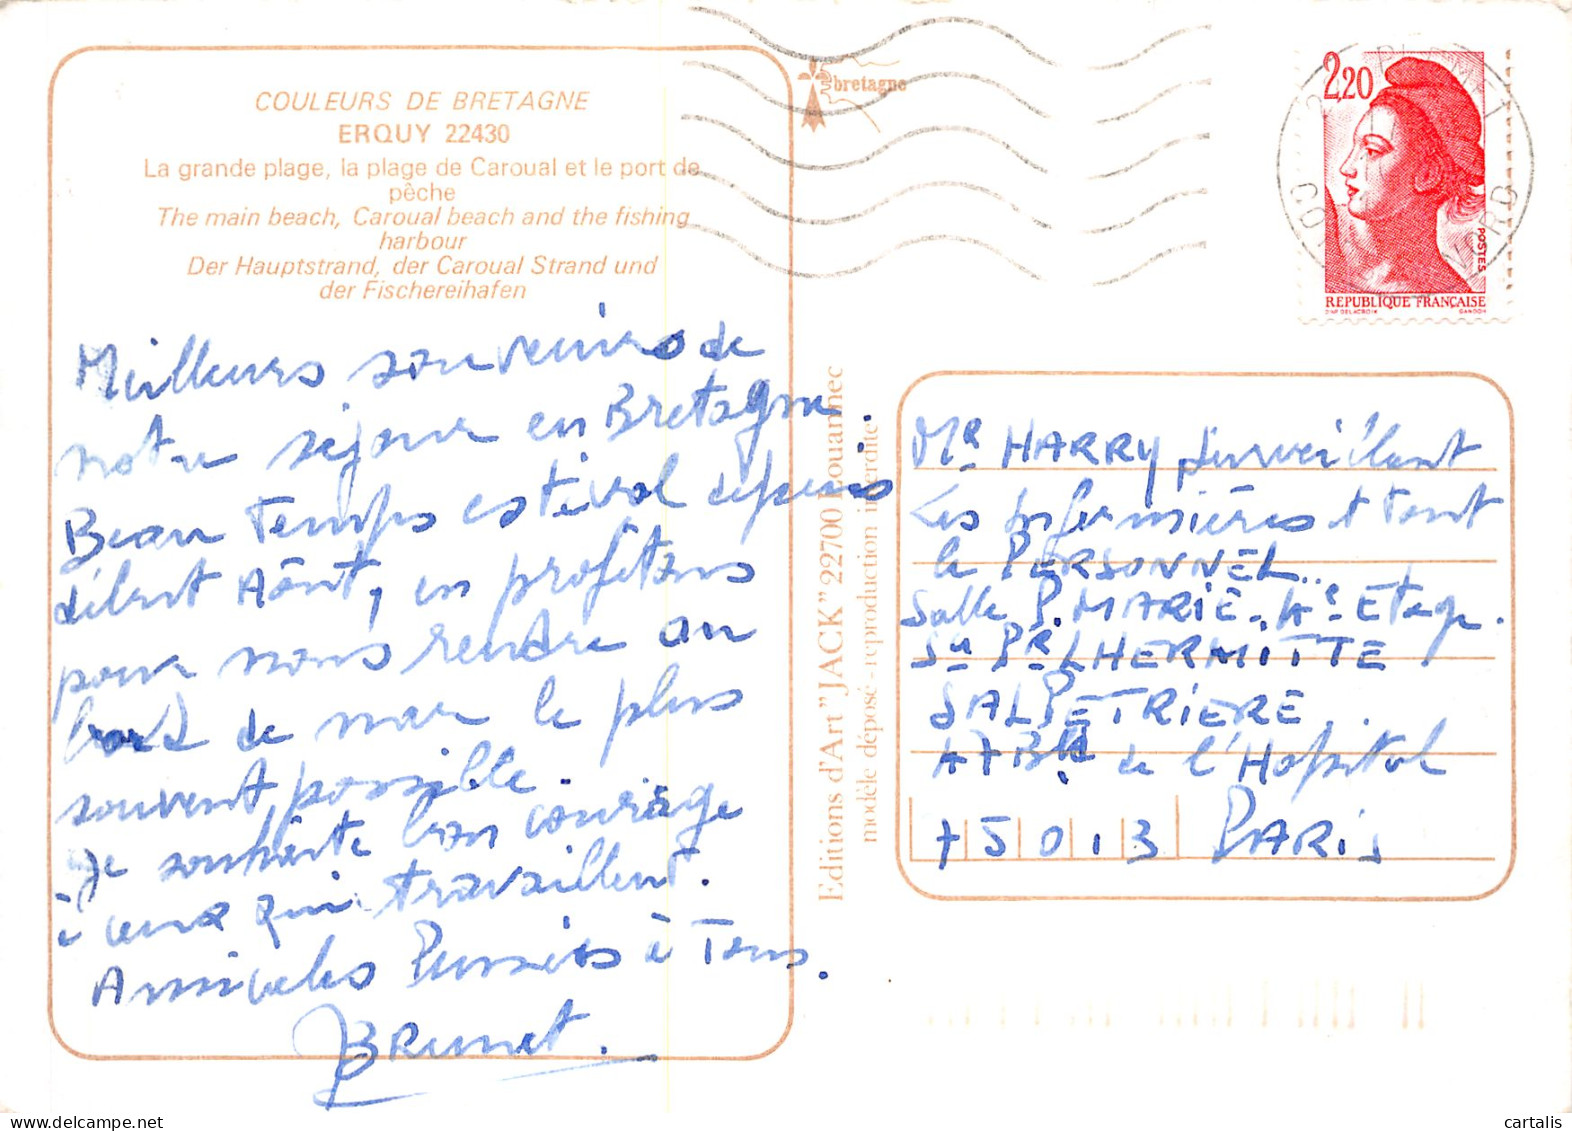 COULEURS DE BRETAGNE
ERQUY 22430
La grande plage, la plage de Caroual et le port de
pêche
The main beach, Caroual beach and the fishing
harbour
Der Hauptstrand, der Caroual Strand und
der Fischereihafen
Meilleurs souvenirs de
notre séjour en Bretagne.
Beau Temps estival depuis
début Août, en profitons
pour nous rendre au
bord de mer le plus
souvent possible.
Je souhaite bon courage
à ceux qui travaillent.
Amicales Pensées à Tous.
BRunet.
bretagne
Editions d'Art "JACK" 22700 Louannec
modèle déposé - reproduction interdite
2,20
POSTES
REPUBLIQUE FRANÇAISE
D'AP DELACROIX GANDON
Mr HARRY surveillant
Les Infirmières et tout
le PERSONNEL..
Salle P. MARIE. 4e Etage.
Sce Pr LHERMITTE
SALPETRIERE.
47 Bd de l'Hopital
75013 PARIS
cartalis